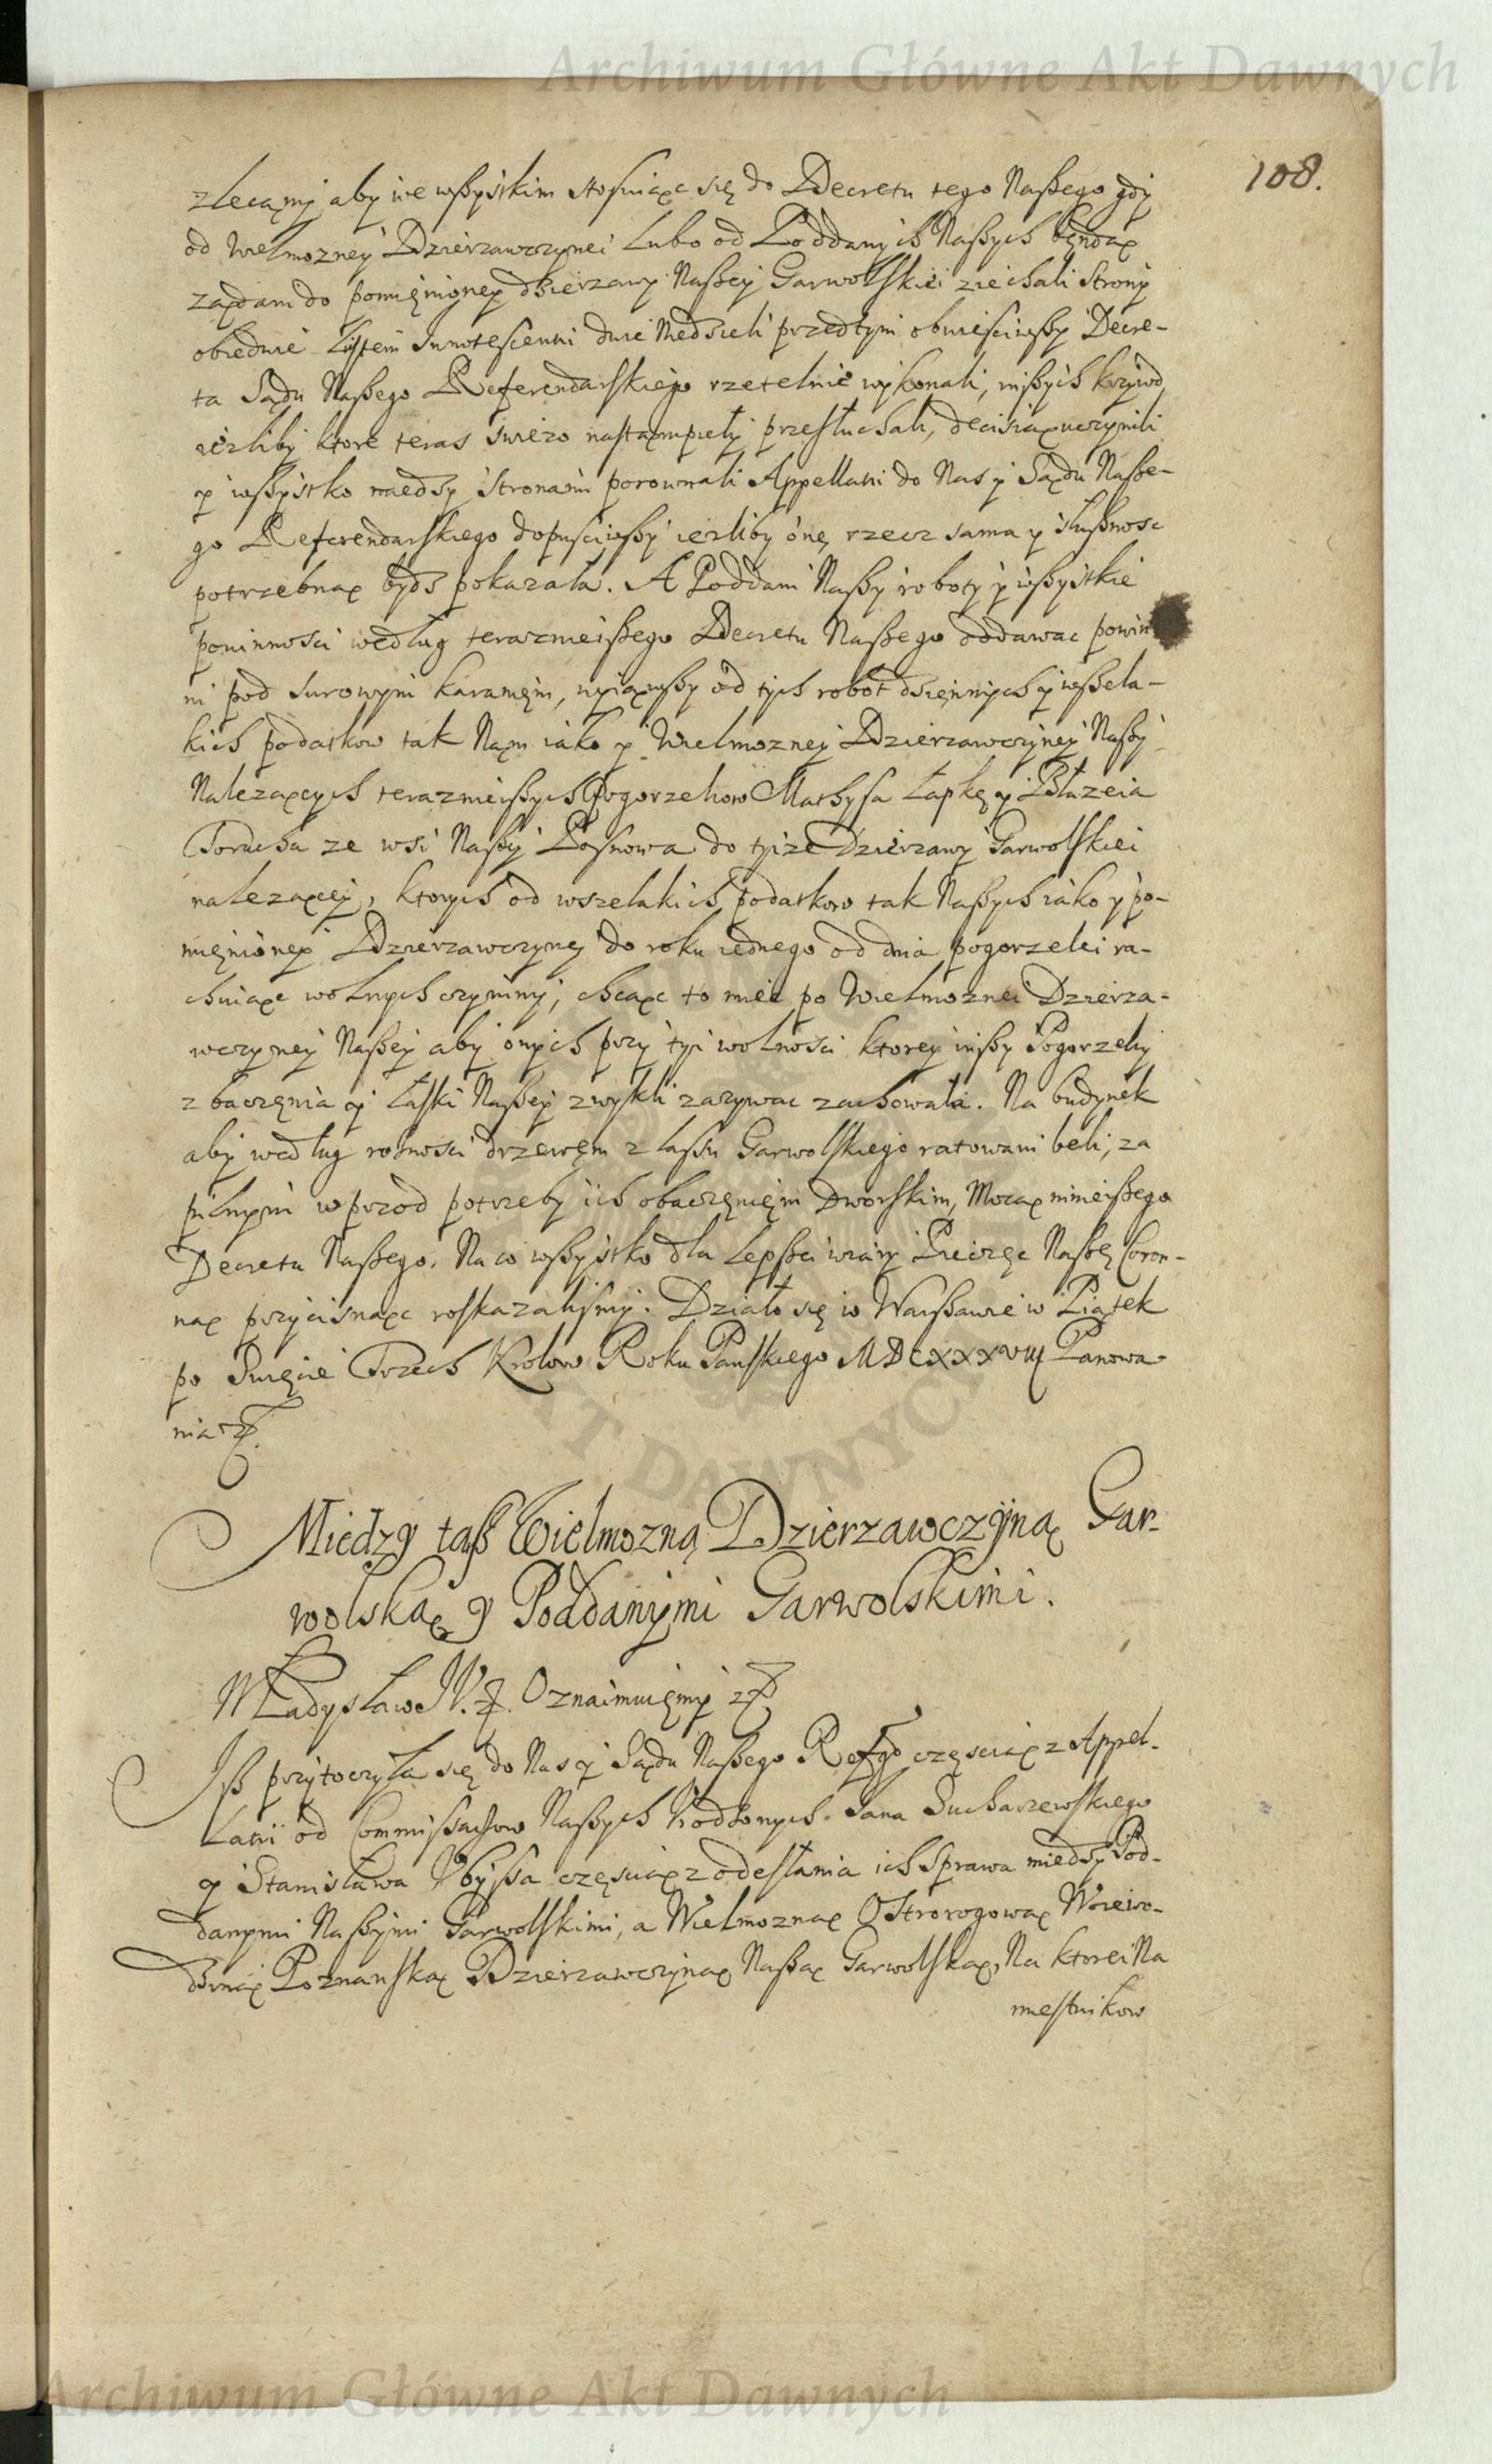 Archiwum Główne Akt Dawnych
108.
zlecamy aby we wszystkim stosuiąc się do Decretu tego Naszego gdy
od Wielmozney Dzierzawczynei lubo od Poddanych Naszych będą
ządani do pomięnioney dzierzawy Naszey Garwolskiei ziechali Strony
obiedwie listem Innotescentii dwie Niedzieli przedtym obwieściwszy Decre-
ta Sądu Naszego Referendarskiego rzetelnie wykonali, inszych krzywd
ieżliby ktore teras swiezo nastąmpieły przesłuchali, decisią uczynili
y wszystko miedzy stronami porownali Appellatii do Nas y Sądu Nasze-
go Referendarskiego dopuściwszy ieżliby onę rzecz sama y słusznosc
potrzebną bydz pokazała. A Poddani Naszy roboty y wszystkie
powinnosci według teraznieiszego Decretu Naszego oddawac powin
ni pod surowym karanięm, wyiąwszy od tych robot dzięnnych y wszela-
kich podatkow tak Nąm iako y Wielmozney Dzierzawczyney Naszy
Nalezących teraznieiszych Pogorzelcow Mathysa Łapkę y Błazeia
Torucha ze wsi Naszy Łosnowa do tyize Dzierzawy Garwolskiei
nalezącey, ktorych od wszelakich podatkow tak Naszych iako y po-
mięnioney Dzierzawczyney do roku iednego od dnia pogorzelei ra-
chuiąc wolnych czynimy, chcąc to miec po Wielmoznei Dzierza-
wczyney Naszey aby onych przy tyi wolnosci ktorey inszy Pogorzelcy
z baczęnia y łaski Naszey zwykli zazywac zachowała. Na budynek
aby według rowności drzewęm z lassu Garwolskiego ratowani beli, za
pilnym wprzod potrzeby ich obaczęnięm Dworskim, Mocą ninieiszego
Decretu Naszego. Na co wszystko dla lepszei wiary Pieczęc Naszę Coron-
ną przycisnąc roskazalismy. Działo się w Warszawie w Piątek
po Swięcie Trzech Krolow Roku Panskiego MDCXXXVIII Panowa
nia etc.
Miedzy tąsz Wielmozną Dzierzawczyną Gar-
wolską y Poddanymi Garwolskimi.
Władysław IV. etc. Oznaimuięmy etc.
Isz przytoczyła się do Nas y Sądu Naszego Refgo częscią z Appel-
latii od Commissarzow Naszych Urodzonych Jana Sucharzewskiego
y Stanisława Ubysza częscią z odesłania ich Sprawa miedzy Pod-
danymi Naszymi Garwolskimi, a Wielmozną Ostrorogową Woiewo-
dziną Poznanską Dzierzawczyną Naszą Garwolską, Na ktorei Na
miestnikow
Archiwum Główne Akt Dawnych